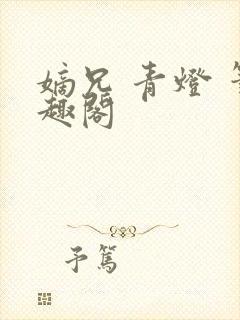 嫡兄 青燈
趣閣
予篤